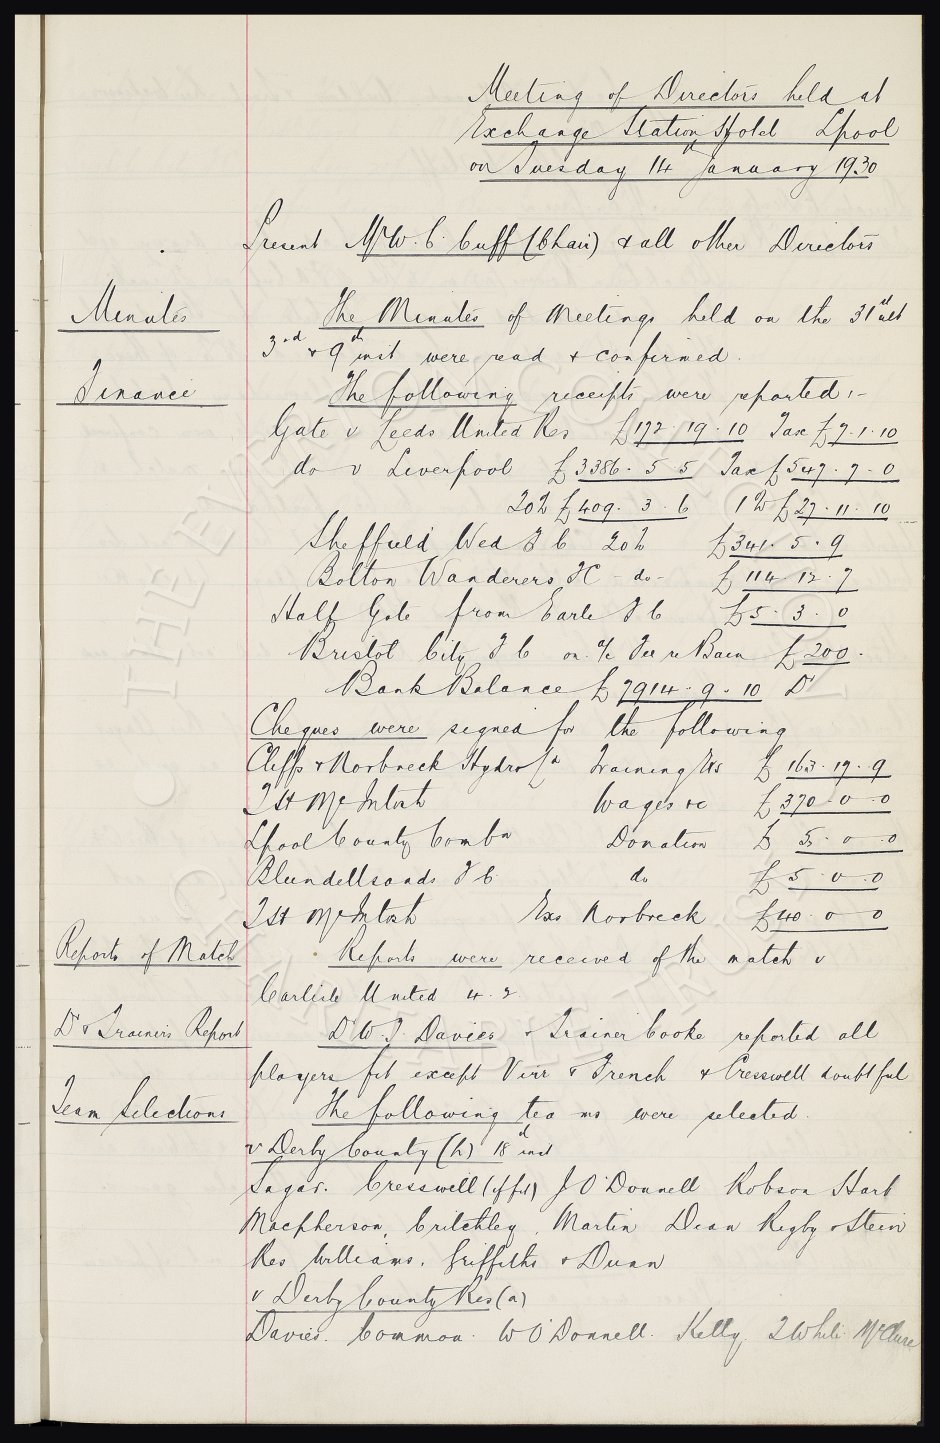 Meeting of Directors held at
Exchange Station Hotel Lpool
on Tuesday 14 January 1930
Present Mr W. C. Cuff (Chair) & all other Directors
Minutes
The Minutes of Meetings held on the 31st ult
3rd & 9th inst were read & confirmed.
Finance
The following receipts were reported :-
Gate v Leeds United Res £172. 19. 10 Tax £7. 1. 10
do v Liverpool £3386. 5 5 Tax £547. 7. 0
20% £409. 3. 6 1% £27. 11. 10
Sheffield Wed F C 20% £341. 5. 9
Bolton Wanderers FC - do - £114. 12. 7
Half Gate from Earle F C £5. 3. 0
Bristol City F C on a/c Fee re Bain £200.
Bank Balance £7914. 9. 10 Dr
Cheques were signed for the following
Cliffs & Norbreck Hydro Training £163. 19. 9
T H McIntosh Wages &c £370 0. 0
Lpool County Combn Donation £5. 0 0
Blundellsands F C do £5. 0. 0
T H McIntosh Exs Norbreck £40. 0 0
Reports of Match
Reports were received of the match v
Carlisle United 4. 2.
Dr & Trainers Report
Dr W. J. Davies & Trainer Cooke reported all
players fit except Virr & French & Cresswell doubtful
Team Selections
The following teams were selected.
v Derby County (h) 18th inst
Sagar. Cresswell (if fit) J O'Donnell Robson Hart
Macpherson, Critchley, Martin Dean Rigby & Stein
Res Williams. Griffiths & Dunn
v Derby County Res (a)
Davies. Common. W O'Donnell. Kelly, T White McClure
© THE EVERTON COLLECTION
CHARITABLE TRUST